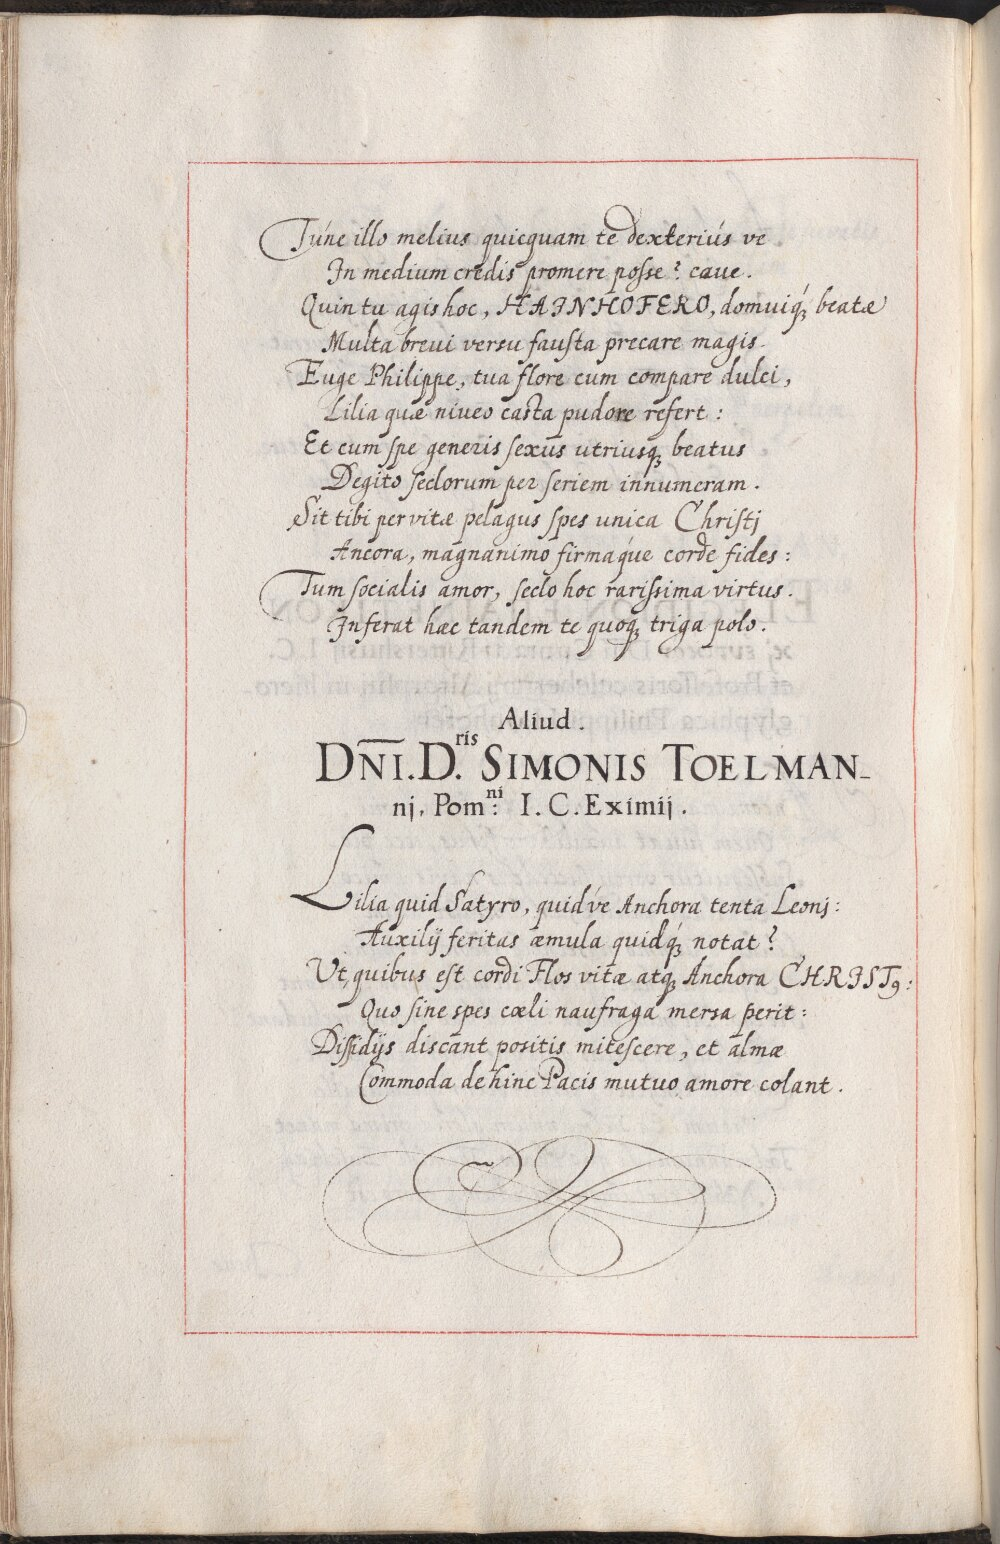 Túne illo melius quicquam te dexteriús ve
In medium credis promere posse? cave.
Quin tu agis hoc, HAINHOFERO, domuiq́, beatæ
Multa brevi versu fausta precare magis.
Euge Philippe, tua flore cum compare dulci,
Lilia quæ niveo casta pudore refert:
Et cum spe generis sexus utriusq, beatus
Degito seclorum per seriem innumeram.
Sit tibi per vitæ pelagus spes unica Christj
Ancora, magnanimo firmaq́ue corde fides:
Tum socialis amor, seclo hoc rarissima virtus.
Inferat hæc tandem te quoq, triga polo.
Aliud.
DN̄I. D.ris SIMONIS TOELMAN-
nj, Pom.ni: I. C. Eximij.
Lilia quid Satyro, quidve Anchora tenta Leonj:
Auxilij feritas æmula quidq́, notat?
Ut, quibus est cordi Flos vitæ atq, Anchora CHRIST9:
Quo sine spes cœli naufraga mersa perit:
Dissidijs discant positis mitescere, et almæ
Commoda dehinc Pacis mutuo amore colant.